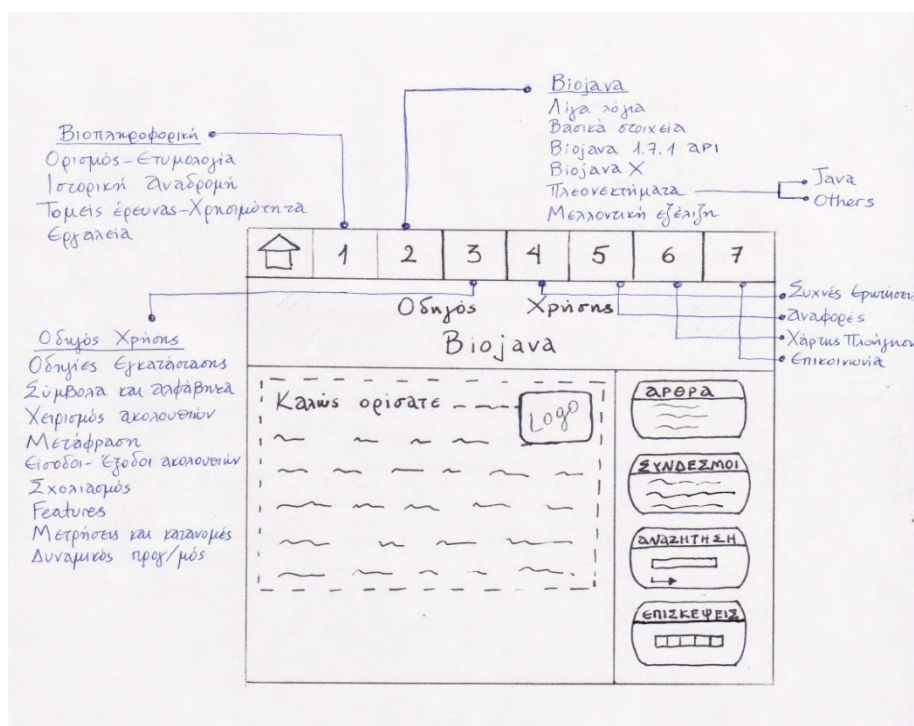 Βιοπληροφορική
Ορισμός-Ετυμολογία
Ιστορική Αναδρομή
Τομείς έρευνας-Χρησιμότητα
Εργαλεία
Biojava
Λίγα λόγια
Βασικά στοιχεία
Biojava 1.7.1 api
Biojava X
Πλεονεκτήματα
Μελλοντική εξέλιξη
Java
Others
1 2 3 4 5 6 7
Συχνές Ερωτήσεις
Αναφορές
Χάρτης Πλοήγησης
Επικοινωνία
Οδηγός Χρήσης
Οδηγίες Εγκατάστασης
Σύμβολα και αλφάβητα
Χειρισμός ακολουθιών
Μετάφραση
Είσοδοι-Έξοδοι ακολουθιών
Σχολιασμός
Features
Μετρήσεις και κατανομές
Δυναμικός προγ/μός
Οδηγός Χρήσης
Biojava
Καλώς ορίσατε
Logo
ΑΡΘΡΑ
ΣΥΝΔΕΣΜΟΙ
ΑΝΑΖΗΤΗΣΗ
ΕΠΙΣΚΕΨΕΙΣ